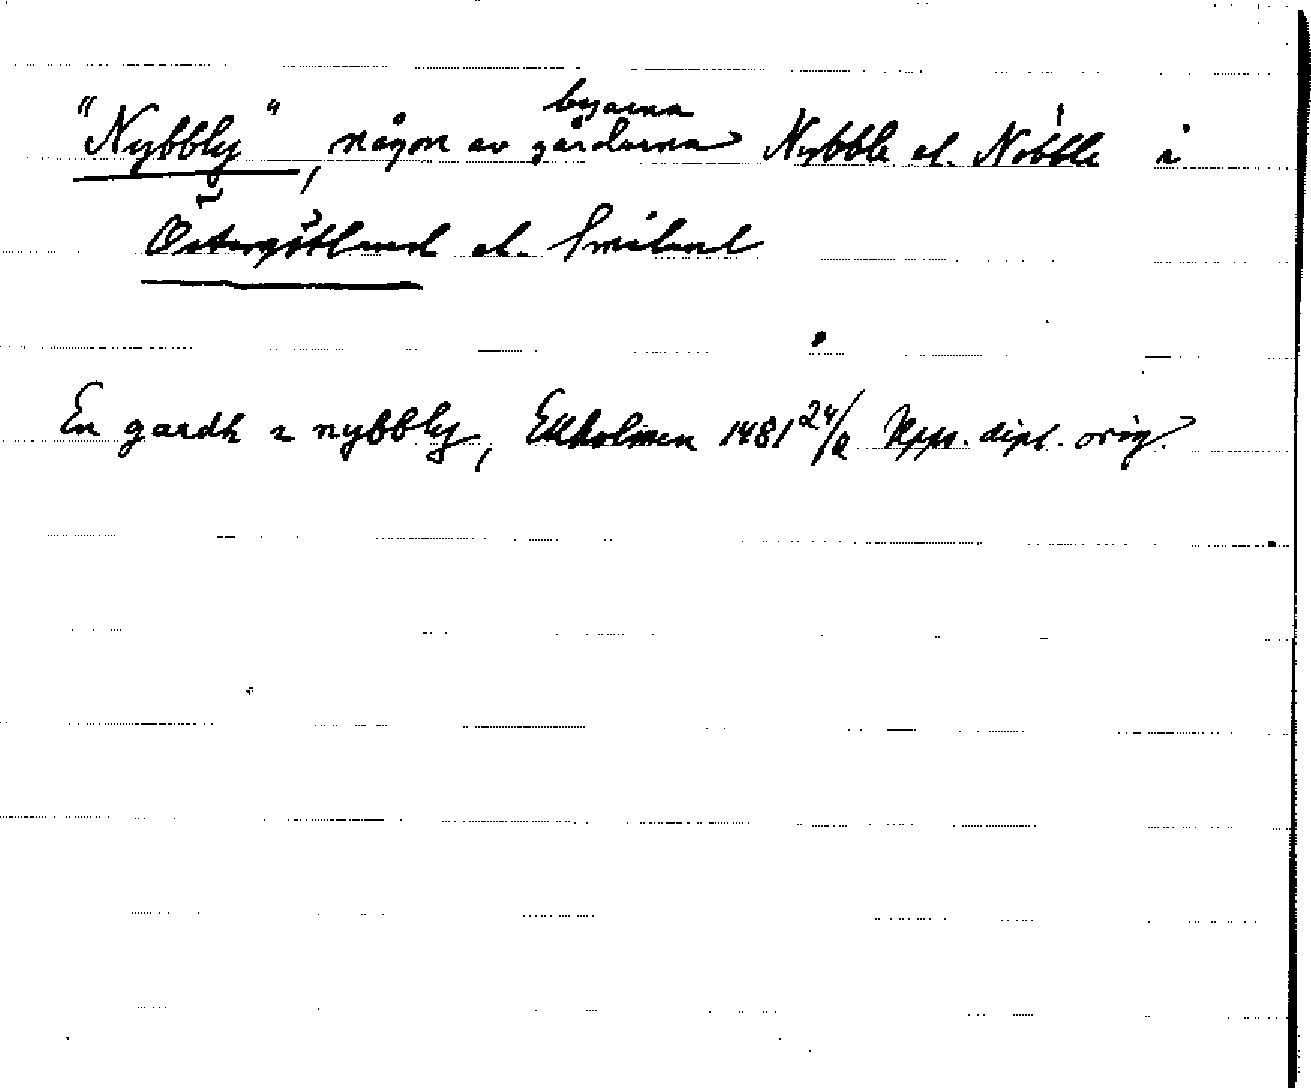 byarna
"Nybbly", någon av gårdarna Nybble el. Nöbble i
Östergötland el. Småland
En gardh i nybbly, Ekholmen 1481 24/9 Upps. dipl. orig.